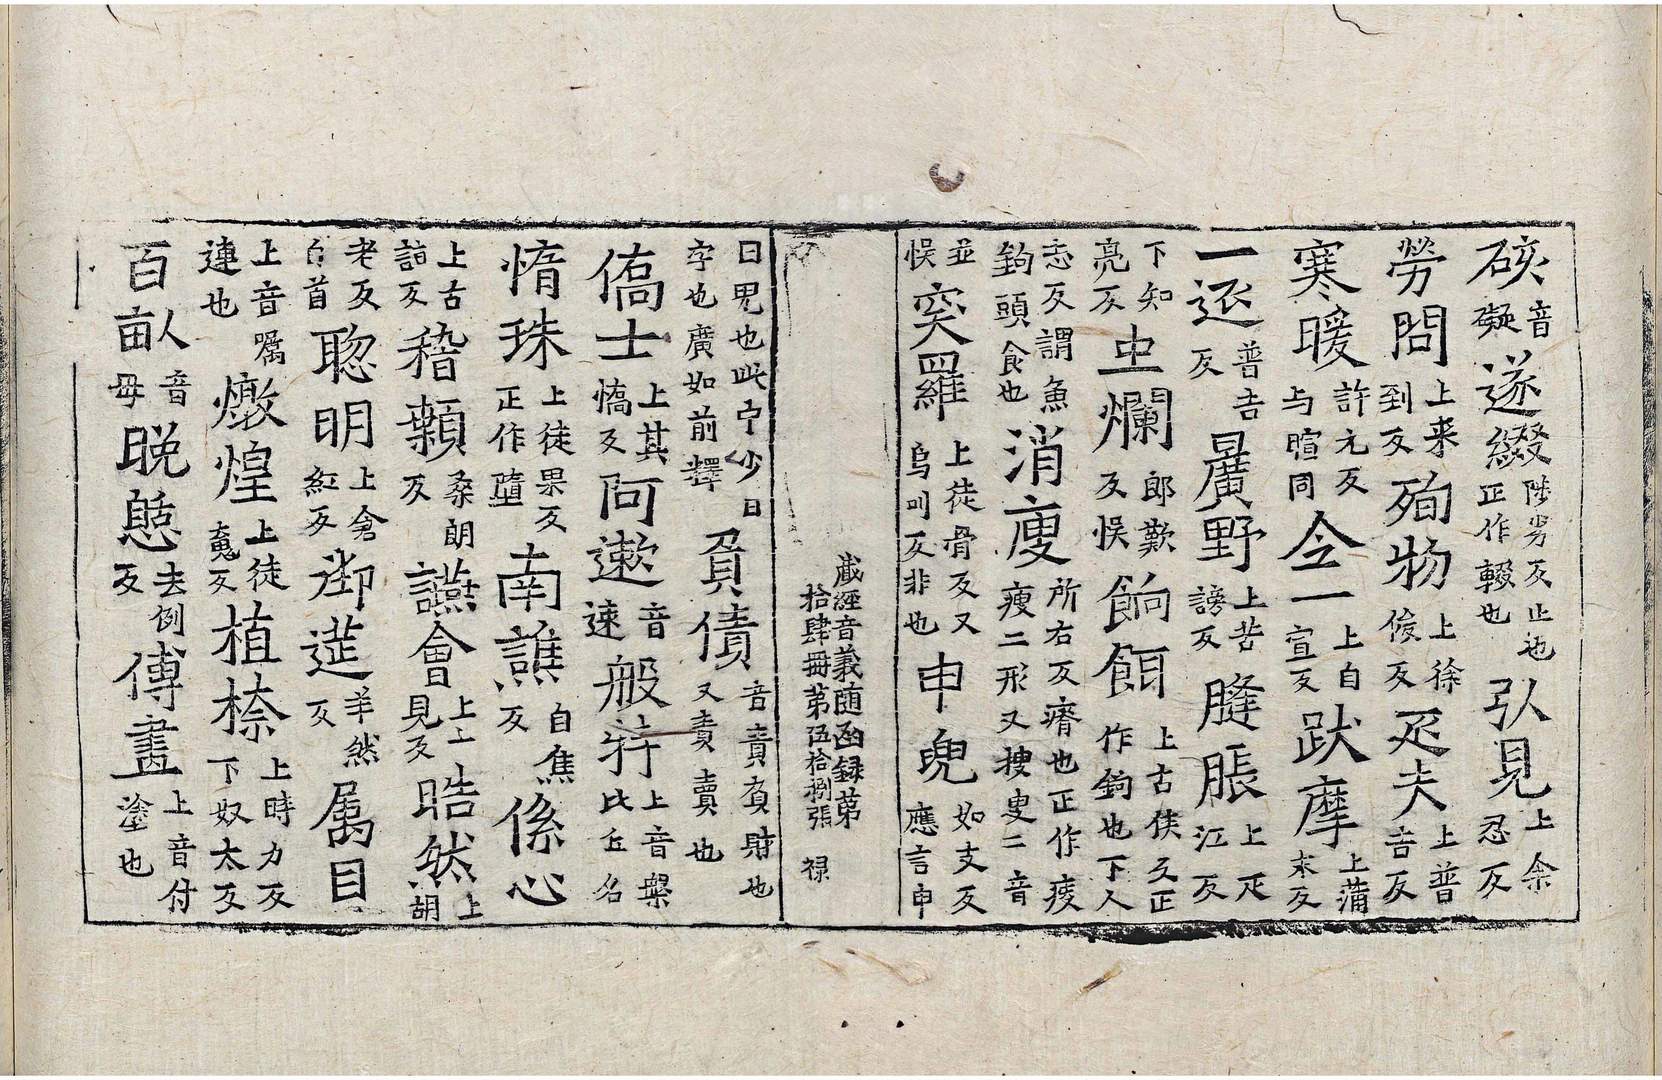 硋音礙遂綴陟劣反止也正作輟也弘見上余忍反
勞問上来到反殉物上徐俊反疋夫上普吉反
寒暖許元反与暄同令一上自宣反跋摩上蒲末反
一逐普吉反曠野上苦謗反膖脹上疋江反
下知亮反虫爛郎歎反悮餉餌上古侯反正作鉤也下人
志反謂魚鉤頭食也消廋所右反瘠也正作瘦瘦二形又搜叟二音
並悮突羅上徒骨反又烏叫反非也申兒如支反應言申
藏經音義随函録第拾肆冊第伍拾捌張 禄
日兒也此宁少日字也廣如前釋負債音責負財也又責賣也
僑士上其憍反阿遬音速般䇯上音槃比丘名
惰珠上徒果反正作墮南譙自焦反係心
上古詣反稽顙桑朗反讌會上一見反晧然上胡
老反白首聡明上倉紅反御莚羊然反属目
上音囑連也燉煌上徒䰟反植㮈上時力反下奴太反
百畝人音母晚憩去例反傅畫上音付塗也